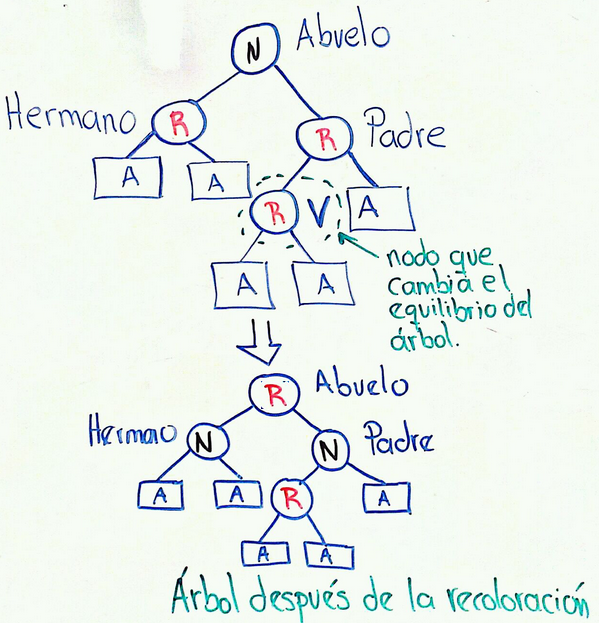 N Abuelo
Hermano R
R Padre
A A
R V A
A A
nodo que
cambia el
equilibrio del
árbol.
R Abuelo
Hermao N
N Padre
A A R A
A A
Árbol después de la recoloración